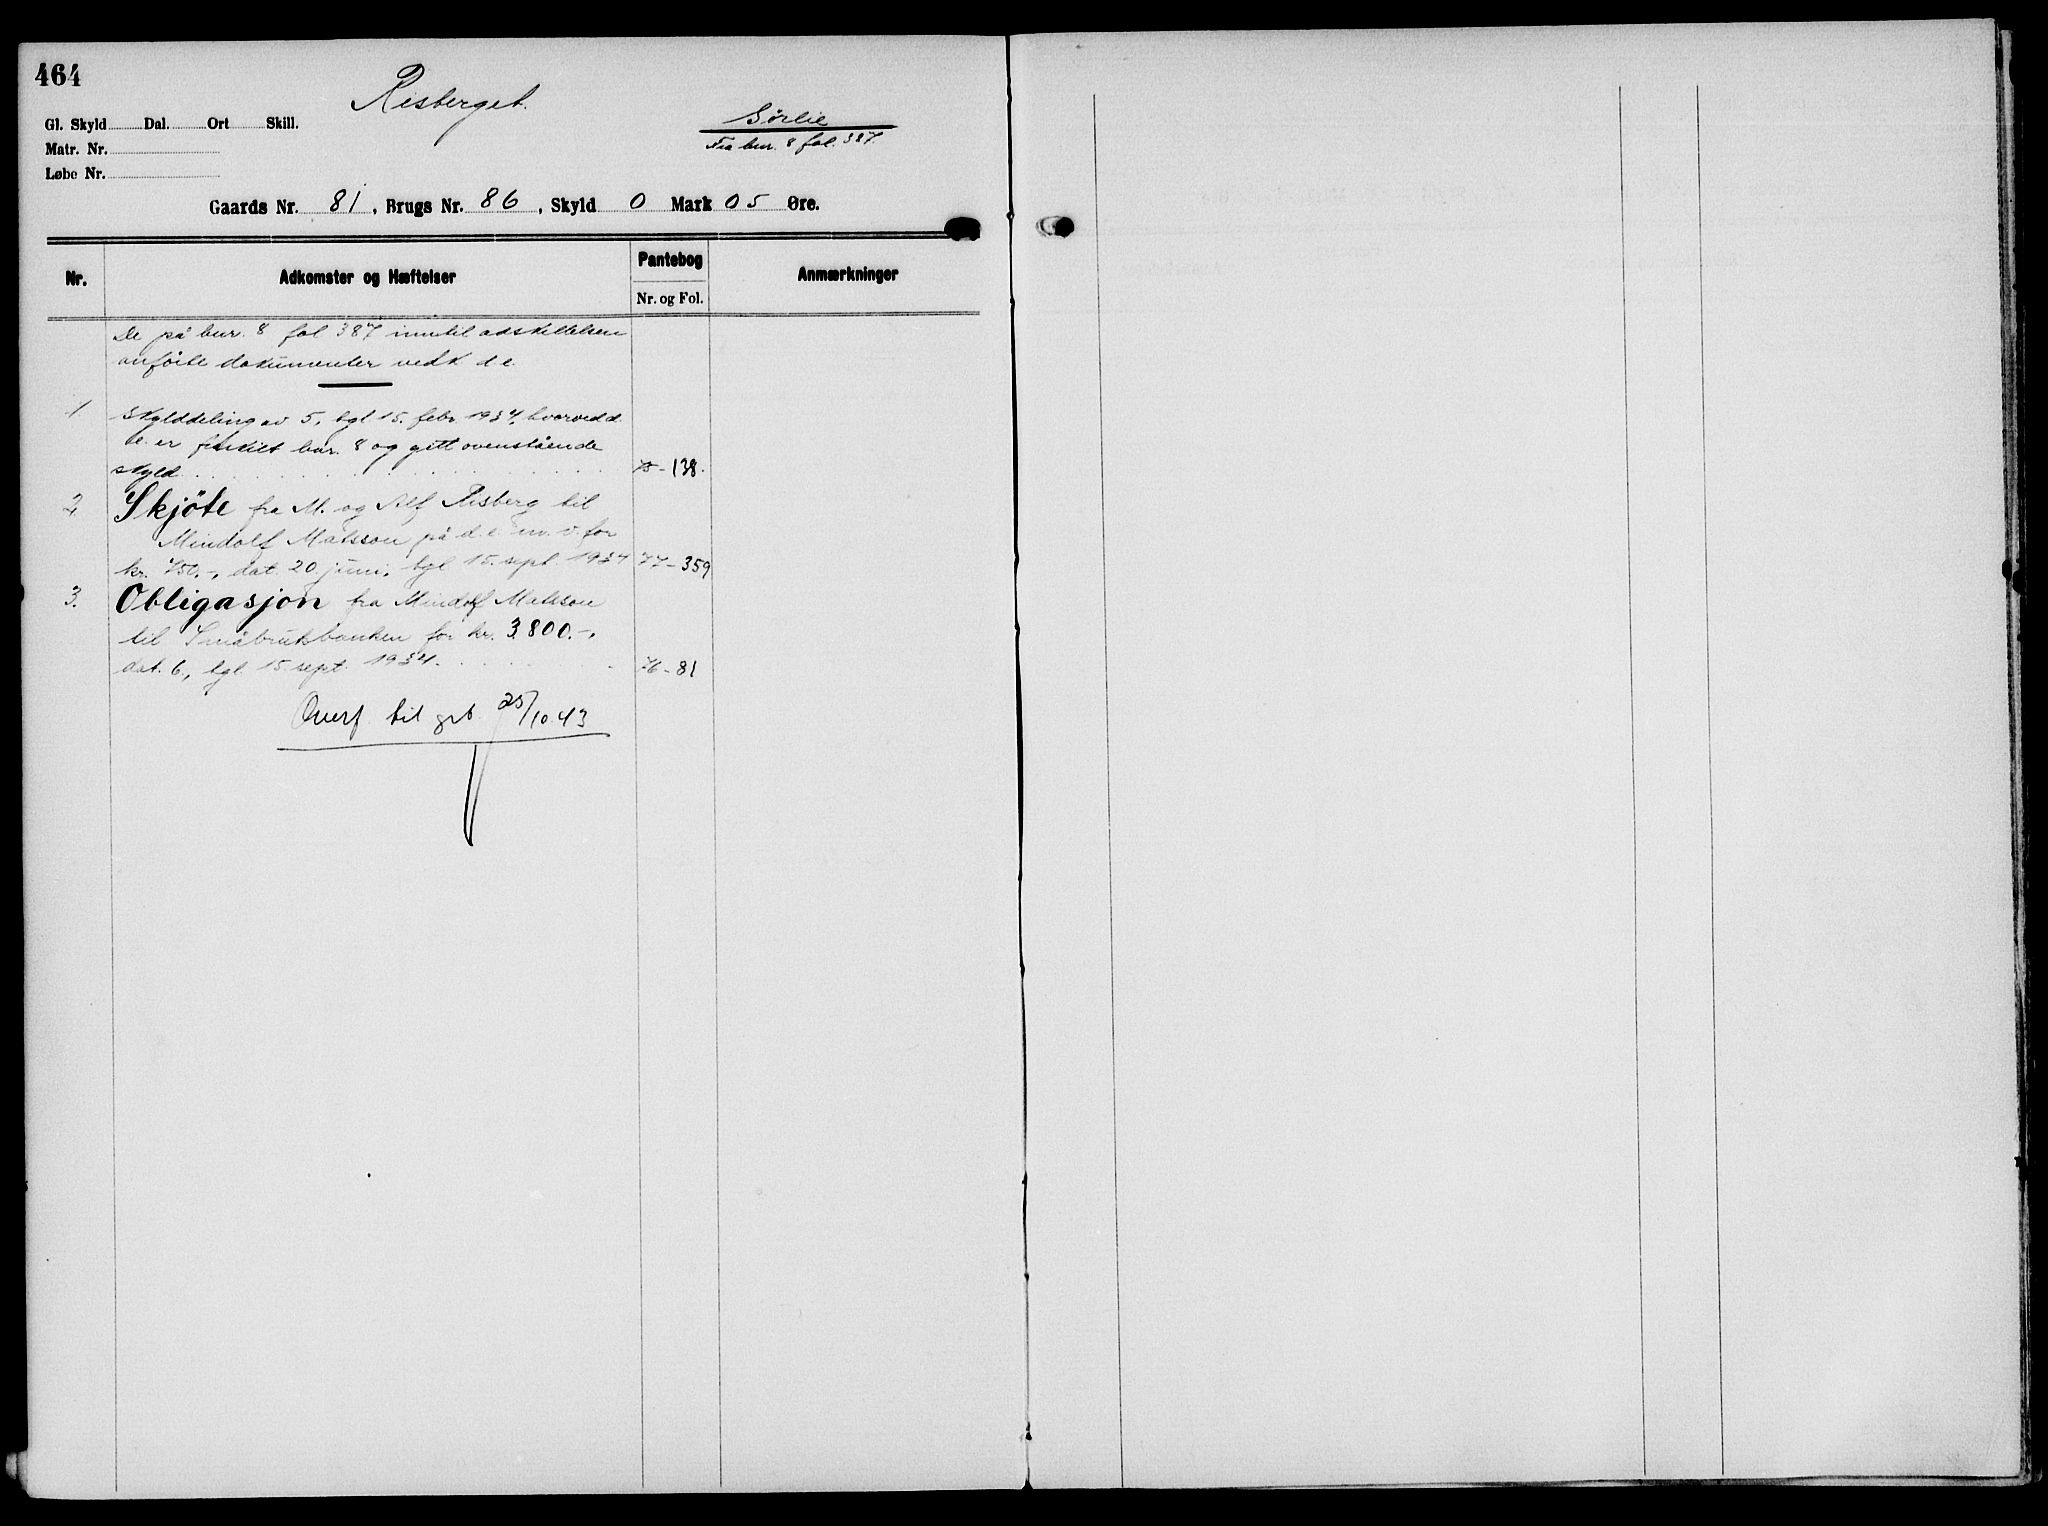 464
Risberget.
Gl. Skyld Dal. Ort Skill.
Sørlie
Matr. Nr.
Fra bnr. 8 fol. 387.
Løbe Nr.
Gaards Nr. 81, Brugs Nr. 86, Skyld 0 Mark 05 Øre.
Nr. Adkomster og Hæftelser Pantebog Anmærkninger
Nr. og Fol.
De på bnr. 8 fol 387 inntil adskillelsen
anførte dokumenter vedk d e.
1. Skylddeling av 5, tgl 15. febr 1934, hvorved d.
e. er fraskilt bnr. 8 og gitt ovenstående
skyld 75-138.
2. Skjöte fra M. og Alf Risberg til
Mindolf Matsson på d.e. m.v. for
kr. 750.-, dat. 20. juni, tgl 15. sept. 1934 77-359
3. Obligasjon fra Mindolf Matsson
til Småbrukbanken for kr. 3800.-,
dat. 6., tgl. 15 sept. 1934. 76-81
Overf. til grb. 25/10.43